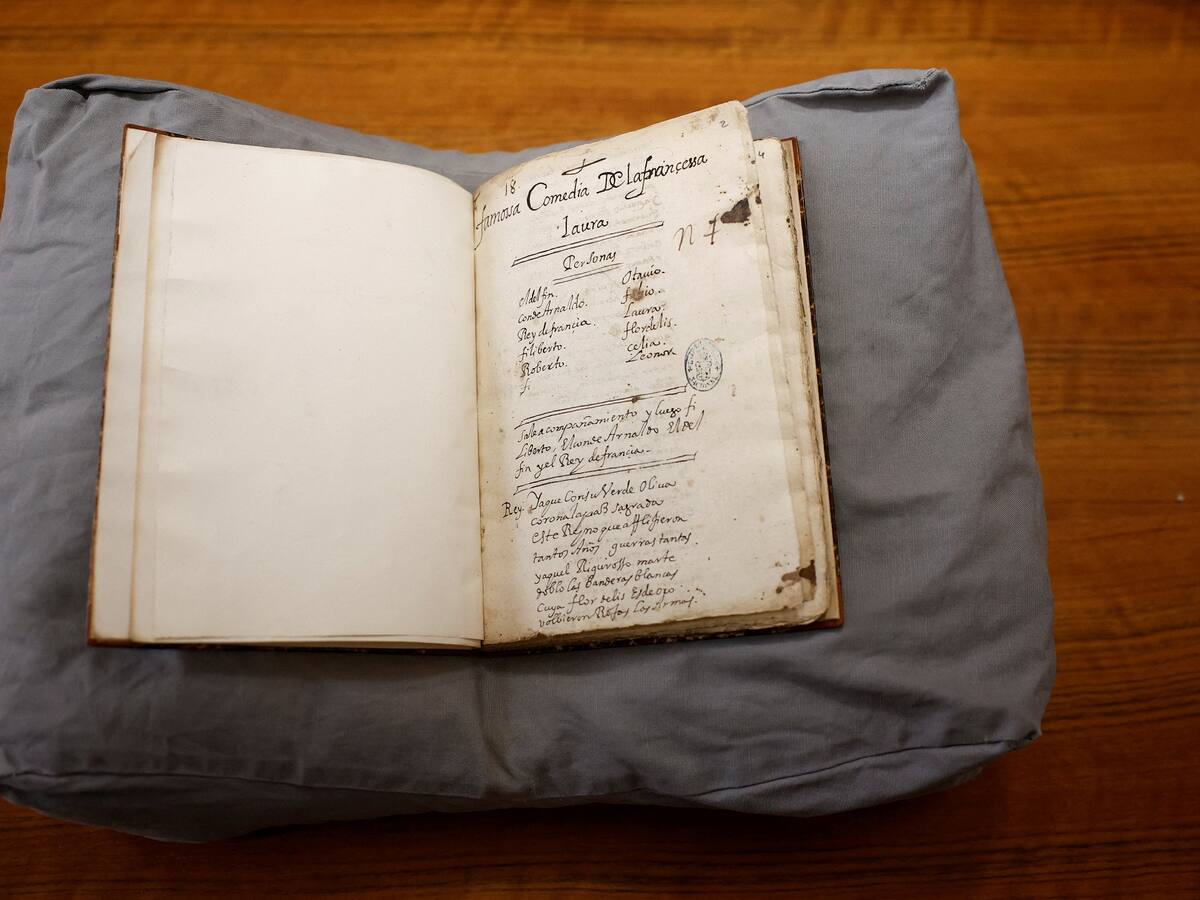 2
4
18
famossa Comedia De lafrancessa
Laura
n 7
Personas
eldelfin. Otauio.
conde Arnaldo. fabio.
Rey defrancia. Laura.
filiberto. flordelis.
Roberto. celia.
fi Leonora
Sale acompañamiento y luego fi
liberto, El conde Arnaldo El del
fin y el Rey defrancia.
Rey. Yaque Consu Verde Oliua
corona la paz sagrada
este Reyno que afflixeron
tantos Años guerras tantas
yaquel Rigurosso marte
doblo las Banderas blancas
cuya flor delis Es de oro
volbieron Rojas las Armas.